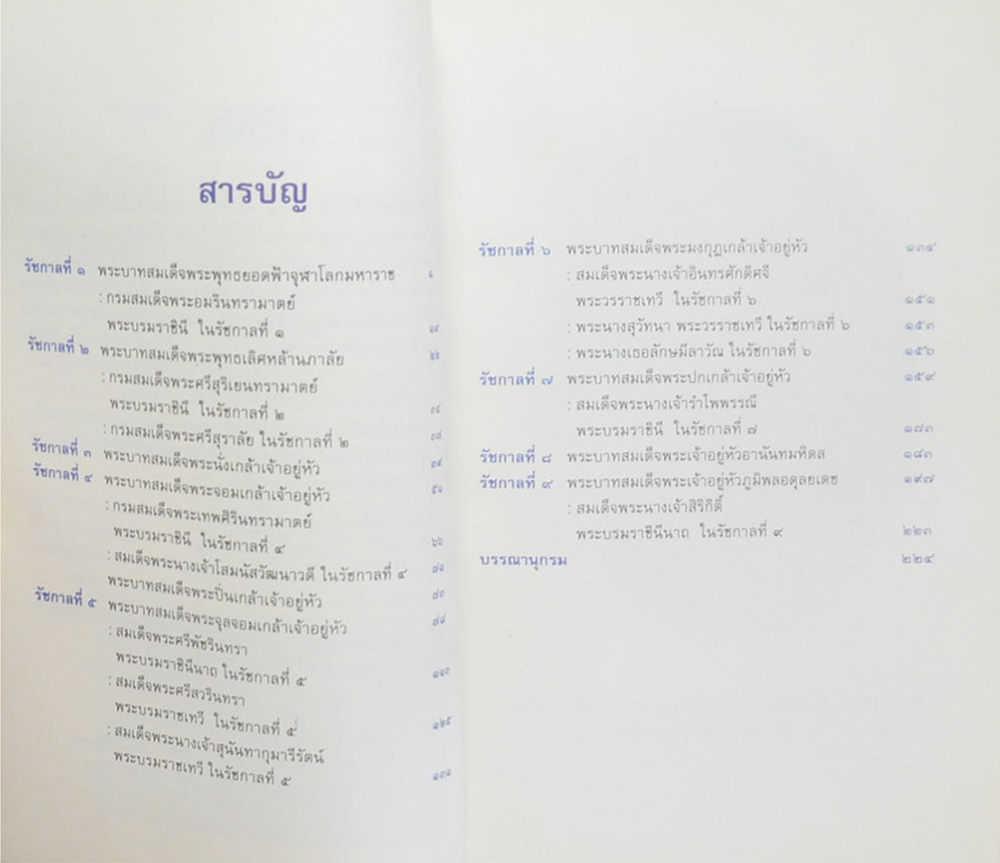 สารบัญ
รัชกาลที่ ๑ พระบาทสมเด็จพระพุทธยอดฟ้าจุฬาโลกมหาราช ๑
: กรมสมเด็จพระอมรินทรามาตย์
พระบรมราชินี ในรัชกาลที่ ๑
รัชกาลที่ ๒ พระบาทสมเด็จพระพุทธเลิศหล้านภาลัย
: กรมสมเด็จพระศรีสุริเยนทรามาตย์
พระบรมราชินี ในรัชกาลที่ ๒
: กรมสมเด็จพระศรีสุราลัย ในรัชกาลที่ ๒
รัชกาลที่ ๓ พระบาทสมเด็จพระนั่งเกล้าเจ้าอยู่หัว
รัชกาลที่ ๔ พระบาทสมเด็จพระจอมเกล้าเจ้าอยู่หัว ๕๑
: กรมสมเด็จพระเทพศิรินทรามาตย์
พระบรมราชินี ในรัชกาลที่ ๔ ๖๖
: สมเด็จพระนางเจ้าโสมนัสวัฒนาวดี ในรัชกาลที่ ๔
พระบาทสมเด็จพระปิ่นเกล้าเจ้าอยู่หัว
รัชกาลที่ ๕ พระบาทสมเด็จพระจุลจอมเกล้าเจ้าอยู่หัว
: สมเด็จพระศรีพัชรินทรา
พระบรมราชินีนาถ ในรัชกาลที่ ๕
: สมเด็จพระศรีสวรินทรา
พระบรมราชเทวี ในรัชกาลที่ ๕ ๑๒๕
: สมเด็จพระนางเจ้าสุนันทากุมารีรัตน์
พระบรมราชเทวี ในรัชกาลที่ ๕ ๑๓๑
รัชกาลที่ ๖ พระบาทสมเด็จพระมงกุฎเกล้าเจ้าอยู่หัว ๑๓๔
: สมเด็จพระนางเจ้าอินทรศักดิศจี
พระวรราชเทวี ในรัชกาลที่ ๖ ๑๕๑
: พระนางสุวัทนา พระวรราชเทวี ในรัชกาลที่ ๖ ๑๕๓
: พระนางเธอลักษมีลาวัณ ในรัชกาลที่ ๖ ๑๕๖
รัชกาลที่ ๗ พระบาทสมเด็จพระปกเกล้าเจ้าอยู่หัว ๑๕๙
: สมเด็จพระนางเจ้ารำไพพรรณี
พระบรมราชินี ในรัชกาลที่ ๗ ๑๗๓
รัชกาลที่ ๘ พระบาทสมเด็จพระเจ้าอยู่หัวอานันทมหิดล ๑๘๓
รัชกาลที่ ๙ พระบาทสมเด็จพระเจ้าอยู่หัวภูมิพลอดุลยเดช ๑๙๗
: สมเด็จพระนางเจ้าสิริกิติ์
พระบรมราชินีนาถ ในรัชกาลที่ ๙ ๒๒๓
บรรณานุกรม ๒๒๔